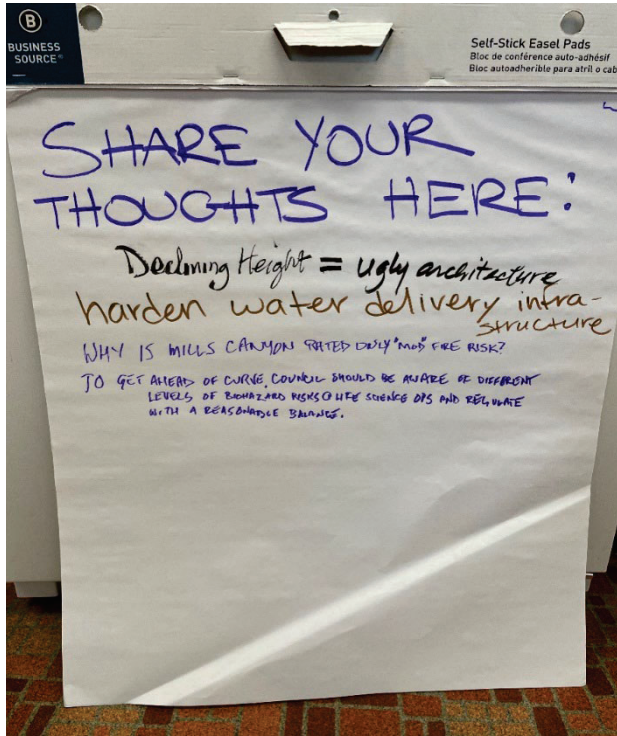 B
BUSINESS
SOURCE®
Self-Stick Easel Pads
Bloc de conférence auto-adhésif
Bloc autoadherible para atril o cab
SHARE YOUR
THOUGHTS HERE:
Declining Height = ugly architecture
harden water delivery infra-
structure
WHY IS MILLS CANYON RATED ONLY "MOD" FIRE RISK?
TO GET AHEAD OF CURVE, COUNCIL SHOULD BE AWARE OF DIFFERENT
LEVELS OF BIOHAZARD RISKS @ LIFE SCIENCE OPS AND REGULATE
WITH A REASONABLE BALANCE.